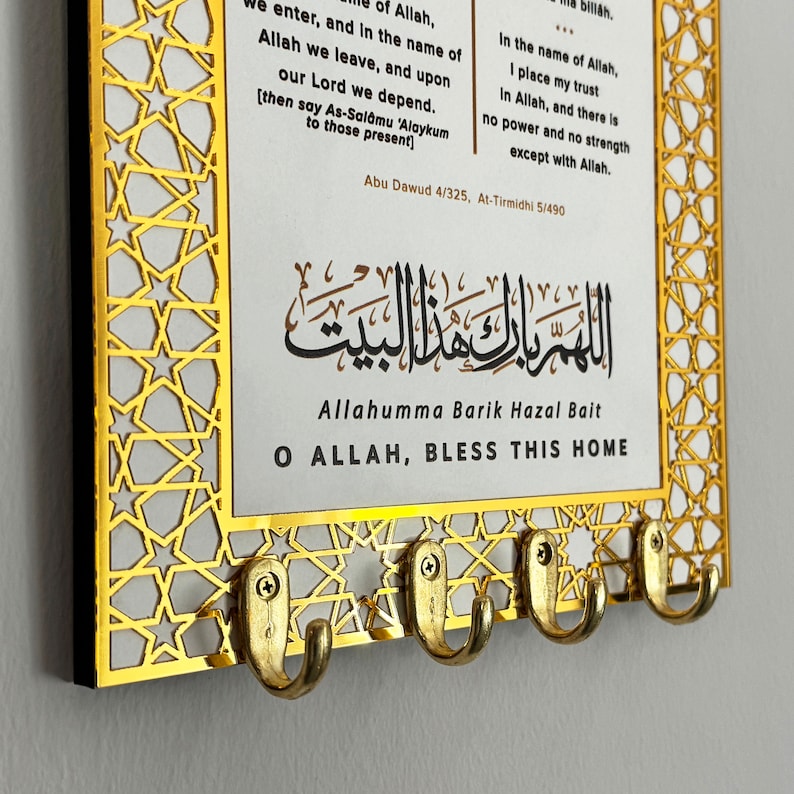 name of Allah,
we enter, and in the name of
Allah we leave, and upon
our Lord we depend.
[then say As-Salâmu ‘Alaykum
to those present]
billâh.
In the name of Allah,
I place my trust
in Allah, and there is
no power and no strength
except with Allah.
Abu Dawud 4/325, At-Tirmidhi 5/490
اللّهُمَّ بَارِكْ هَذَا الْبَيْتَ
Allahumma Barik Hazal Bait
O ALLAH, BLESS THIS HOME